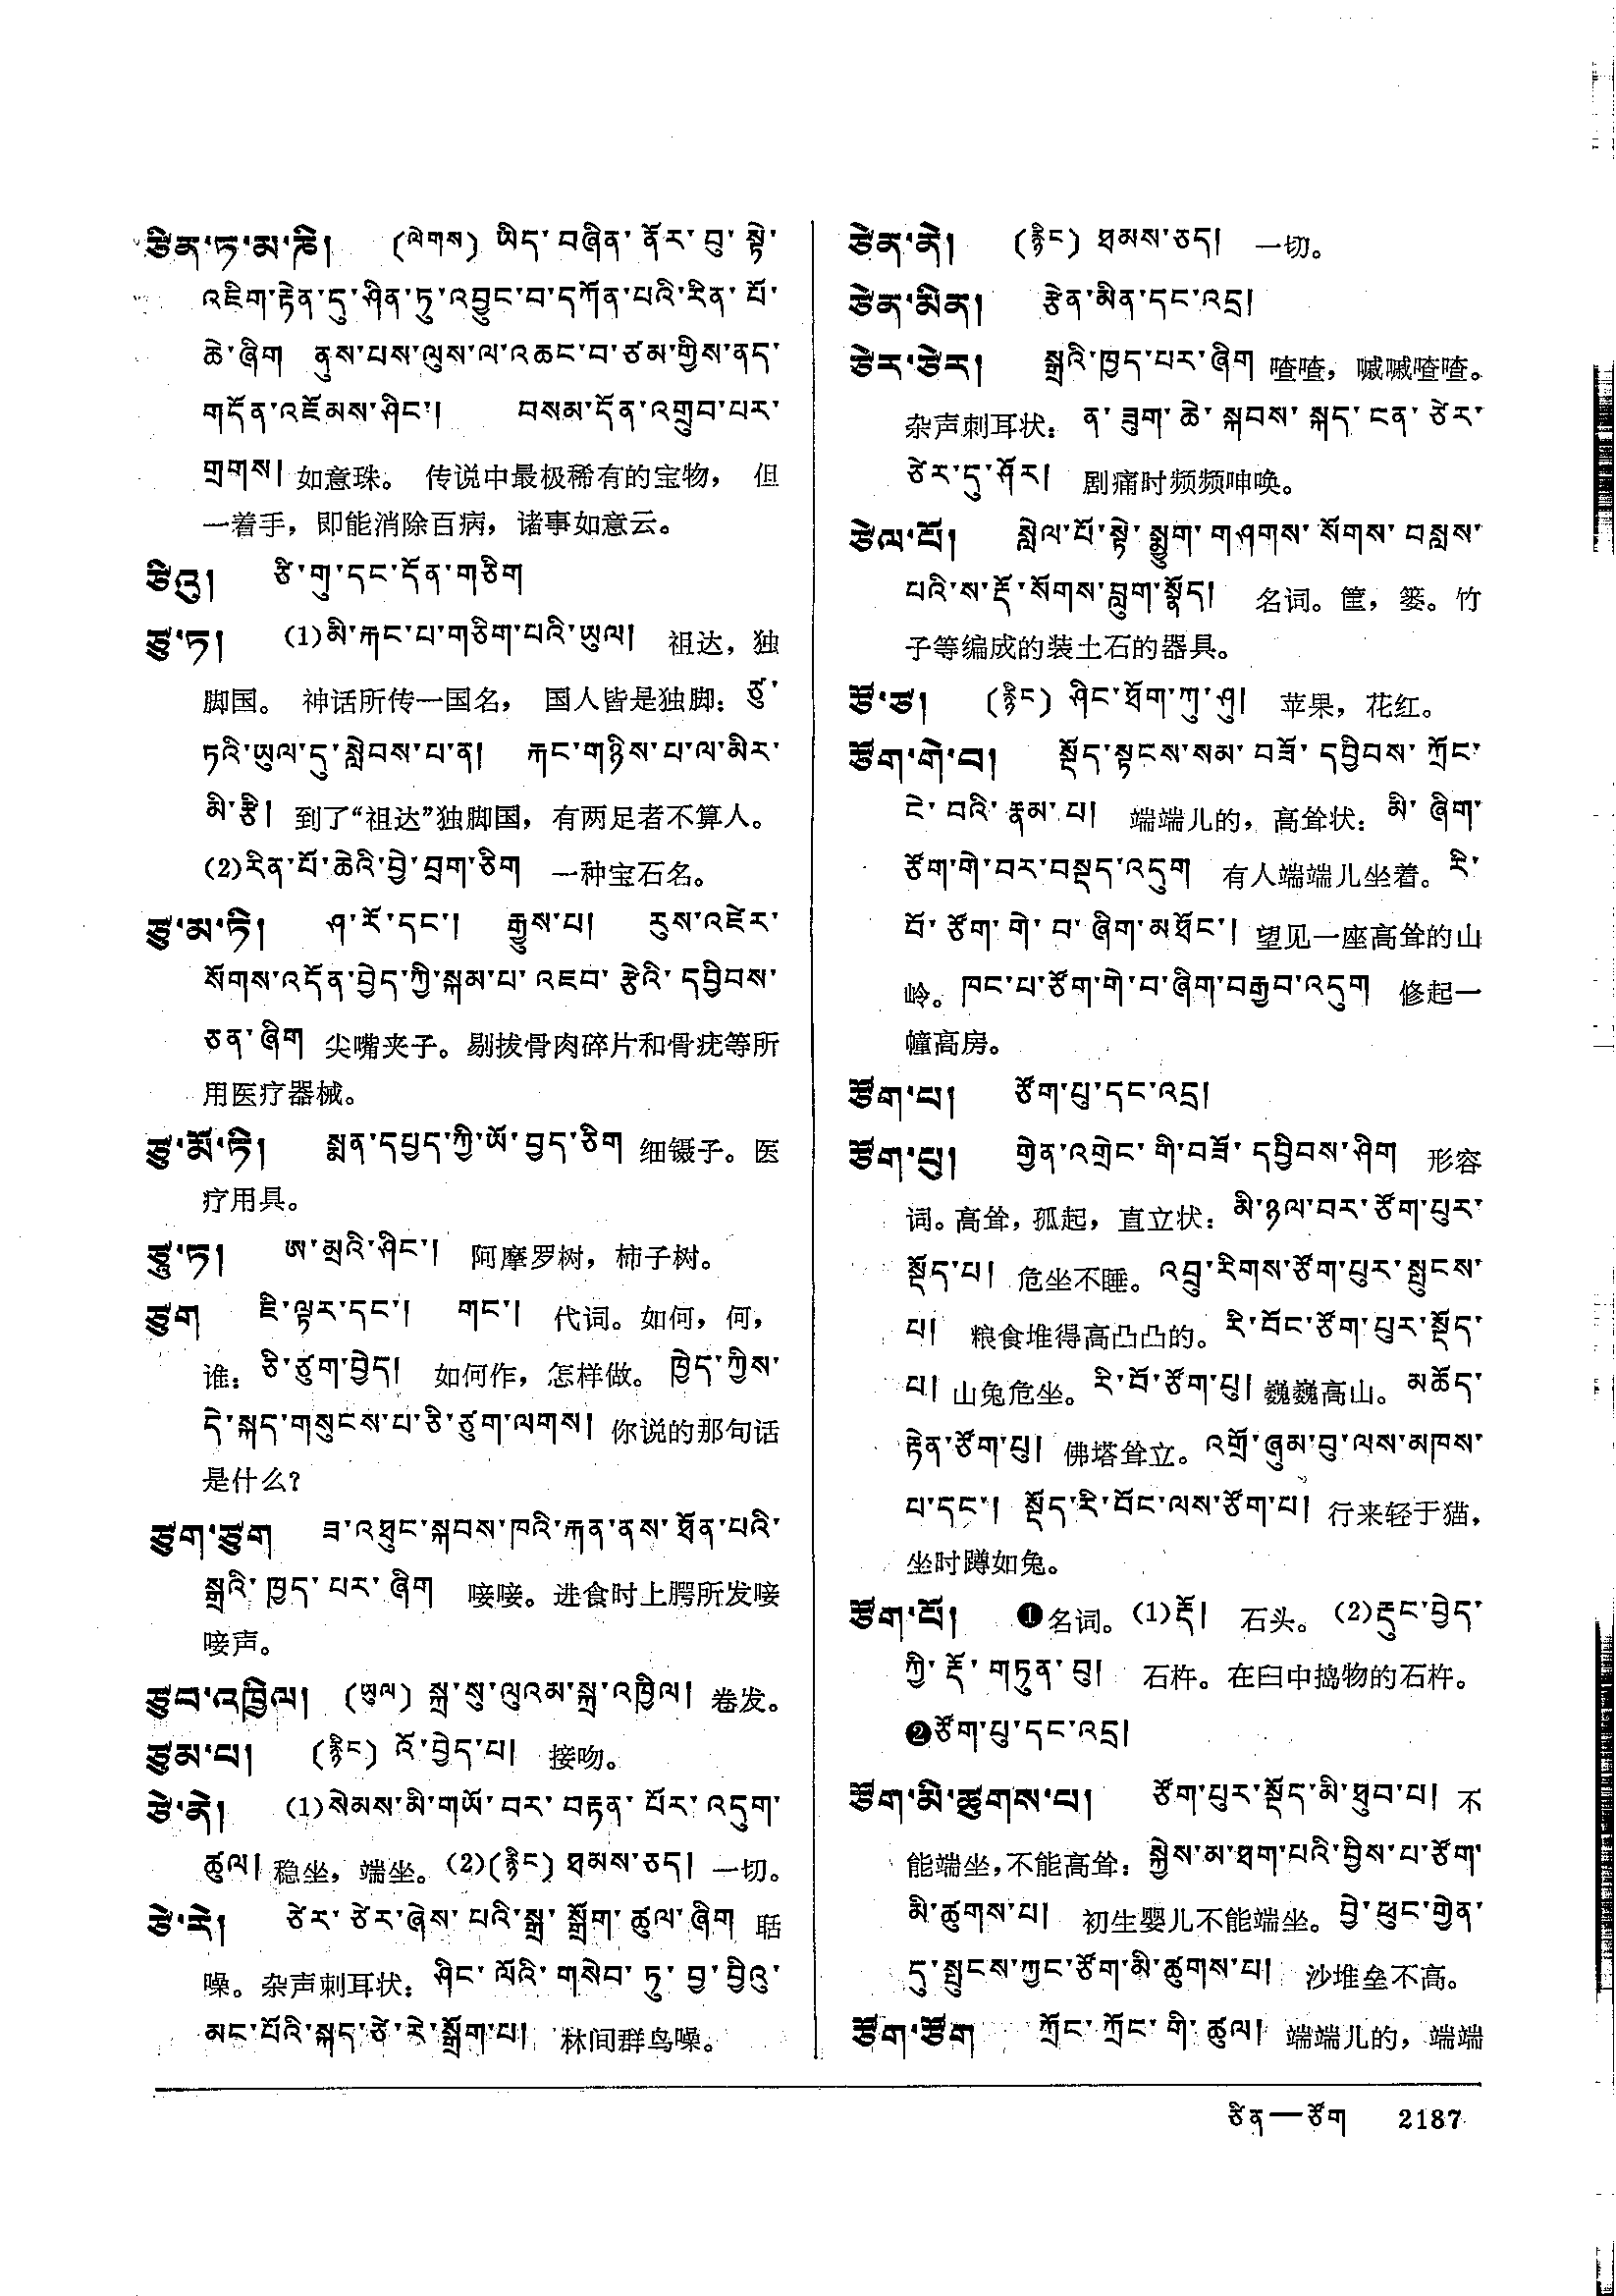 ཙིན་ཏ་མ་ཎི། (ལེགས) ཡིད་བཞིན་ནོར་བུ་སྟེ་
འཇིག་རྟེན་དུ་ཤིན་ཏུ་འབྱུང་བ་དཀོན་པའི་རིན་པོ་
ཆེ་ཞིག ནུས་པས་ལུས་ལ་འཆང་བ་ཙམ་གྱིས་ནད་
གདོན་འཇོམས་ཤིང་། བསམ་དོན་འགྲུབ་པར་
གྲགས། 如意珠。 传说中最极稀有的宝物， 但
一着手，即能消除百病，诸事如意云。
ཙིའུ། ཙི་གུ་དང་དོན་གཅིག
ཙུ་ཏ། (1)མི་རྐང་པ་གཅིག་པའི་ཡུལ། 祖达，独
脚国。 神话所传一国名， 国人皆是独脚：ཙུ་
ཏའི་ཡུལ་དུ་སླེབས་པ་ན། རྐང་གཉིས་པ་ལ་མིར་
མི་རྩི། 到了“祖达”独脚国，有两足者不算人。
(2)རིན་པོ་ཆེའི་བྱེ་བྲག་ཅིག 一种宝石名。
ཙུ་མ་ཏི། ཤ་རོ་དང་། རྒྱུས་པ། རུས་འཛེར་
སོགས་འདོན་བྱེད་ཀྱི་སྐམ་པ་འཇབ་རྩེའི་དབྱིབས་
ཅན་ཞིག 尖嘴夹子。剔拔骨肉碎片和骨疣等所
用医疗器械。
ཙུ་མོ་ཏི། སྨན་དཔྱད་ཀྱི་ཡོ་བྱད་ཅིག 细镊子。医
疗用具。
ཙཱུ་ཏ། ཨ་མྲའི་ཤིང་། 阿摩罗树，柿子树。
ཙུག ཇི་ལྟར་དང་། གང་། 代词。如何，何，
谁：ཅི་ཙུག་བྱེད། 如何作，怎样做。ཁྱེད་ཀྱིས་
དེ་སྐད་གསུངས་པ་ཅི་ཙུག་ལགས། 你说的那句话
是什么？
ཙུག་ཙུག ཟ་འཐུང་སྐབས་ཁའི་རྐན་ནས་ཐོན་པའི་
སྒྲའི་ཁྱད་པར་ཞིག 唼唼。进食时上腭所发唼
唼声。
ཙུབ་འཁྱིལ། (ཡུལ) སྐྲ་སུ་ལུའམ་སྐྲ་འཁྱིལ། 卷发。
ཙུམ་པ། (རྙིང) འོ་བྱེད་པ། 接吻。
ཙེ་ནེ། (1)སེམས་མི་གཡོ་བར་བརྟན་པོར་འདུག་
ཚུལ། 稳坐，端坐。(2)(རྙིང) ཐམས་ཅད། 一切。
ཙེ་རེ། ཙེར་ཙེར་ཞེས་པའི་སྒྲ་སྒྲོག་ཚུལ་ཞིག 聒
噪。杂声刺耳状：ཤིང་ལོའི་གསེབ་ཏུ་བྱ་བྱིའུ་
མང་པོའི་སྐད་ཙེ་རེ་སྒྲོག་པ། 林间群鸟噪。
ཙེན་ནེ། (རྙིང) ཐམས་ཅད། 一切。
ཙེན་མིན། རྩེན་མིན་དང་འདྲ།
ཙེར་ཙེར། སྒྲའི་ཁྱད་པར་ཞིག 喳喳，嘁嘁喳喳。
杂声刺耳状：ན་ཟུག་ཆེ་སྐབས་སྐད་ངན་ཙེར་
ཙེར་དུ་ཤོར། 剧痛时频频呻唤。
ཙེལ་པོ། སླེལ་པོ་སྟེ་སྨྱུག་གཤགས་སོགས་བསླས་
པའི་ས་རྡོ་སོགས་བླུག་སྣོད། 名词。筐，篓。竹
子等编成的装土石的器具。
ཙོ་ཙ། (རྙིང) ཤིང་ཐོག་ཀུ་ཤུ། 苹果，花红。
ཙོག་གེ་བ། སྡོད་སྟངས་སམ་བཟོ་དབྱིབས་ཀྲོང་
ངེ་བའི་རྣམ་པ། 端端儿的，高耸状：མི་ཞིག་
ཙོག་གེ་བར་བསྡད་འདུག 有人端端儿坐着。རི་
བོ་ཙོག་གེ་བ་ཞིག་མཐོང་། 望见一座高耸的山
岭。ཁང་པ་ཙོག་གེ་བ་ཞིག་བརྒྱབ་འདུག 修起一
幢高房。
ཙོག་པ། ཙོག་པུ་དང་འདྲ།
ཙོག་པུ། གྱེན་འགྲེང་གི་བཟོ་དབྱིབས་ཤིག 形容
词。高耸，孤起，直立状：མི་ཉལ་བར་ཙོག་པུར་
སྡོད་པ། 危坐不睡。འབྲུ་རིགས་ཙོག་པུར་སྤུངས་
པ། 粮食堆得高凸凸的。རི་བོང་ཙོག་པུར་སྡོད་
པ། 山兔危坐。རི་བོ་ཙོག་པུ། 巍巍高山。མཆོད་
རྟེན་ཙོག་པུ། 佛塔耸立。འགྲོ་ཞུམ་བུ་ལས་མཁས་
པ་དང་། སྡོད་རི་བོང་ལས་ཙོག་པ། 行来轻于猫，
坐时蹲如兔。
ཙོག་པོ། ❶名词。(1)རྡོ། 石头。(2)རྡུང་བྱེད་
ཀྱི་རྡོ་གཏུན་བུ། 石杵。在臼中捣物的石杵。
❷ཙོག་པུ་དང་འདྲ།
ཙོག་མི་ཚུགས་པ། ཙོག་པུར་སྡོད་མི་ཐུབ་པ། 不
能端坐，不能高耸：སྐྱེས་མ་ཐག་པའི་བྱིས་པ་ཙོག་
མི་ཚུགས་པ། 初生婴儿不能端坐。བྱེ་ཕུང་གྱེན་
དུ་སྤུངས་ཀྱང་ཙོག་མི་ཚུགས་པ། 沙堆垒不高。
ཙོག་ཙོག ཀྲོང་ཀྲོང་གི་ཚུལ། 端端儿的，端端
ཙིན—ཙོག 2187